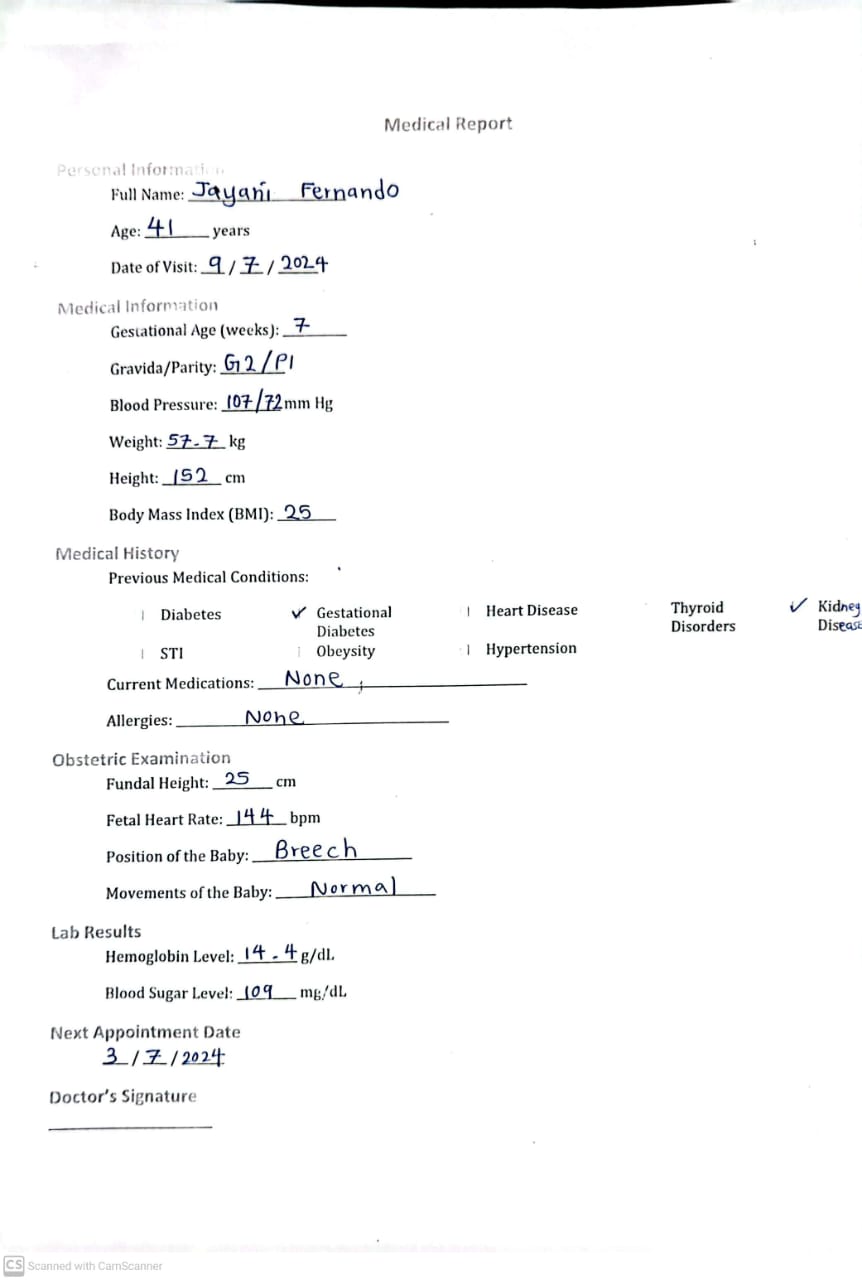 Medical Report
Personal Information
Full Name: Jayani Fernando
Age: 41 years
Date of Visit: 9/7/2024
Medical Information
Gestational Age (weeks): 7
Gravida/Parity: G2/P1
Blood Pressure: 107/72 mm Hg
Weight: 57.7 kg
Height: 152 cm
Body Mass Index (BMI): 25
Medical History
Previous Medical Conditions:
Diabetes ✓ Gestational Diabetes Heart Disease Thyroid Disorders ✓ Kidney Disease
STI Obeysity Hypertension
Current Medications: None
Allergies: None
Obstetric Examination
Fundal Height: 25 cm
Fetal Heart Rate: 144 bpm
Position of the Baby: Breech
Movements of the Baby: Normal
Lab Results
Hemoglobin Level: 14.4 g/dL
Blood Sugar Level: 109 mg/dL
Next Appointment Date
3/7/2024
Doctor's Signature
CS Scanned with CamScanner